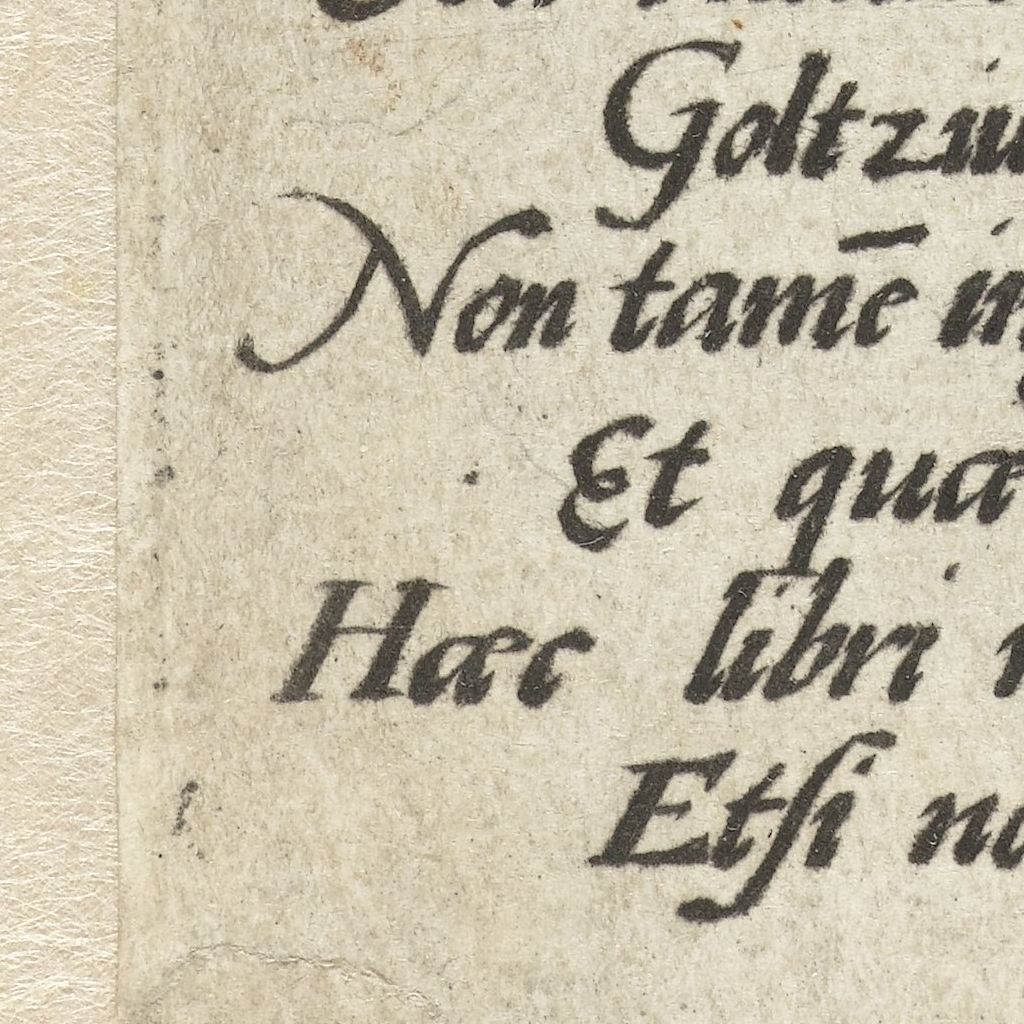 Goltziu
Non tamē in
Et quæ
Hæc libri
Etſi no